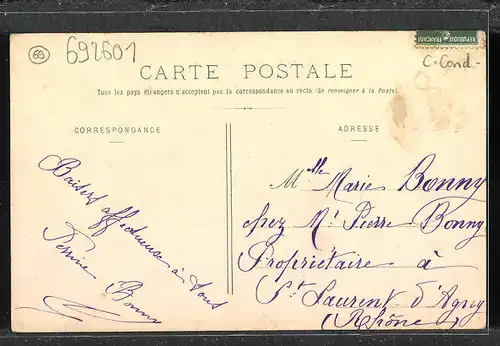 69
692601
RÉPUBLIQUE FRANÇAISE
C. Cond.
CARTE POSTALE
Tous les pays étrangers n'acceptent pas la correspondance au recto (Se renseigner à la Poste)
CORRESPONDANCE
ADRESSE
Baisers affectueuse à tous
Perrine Bonny
Mlle Marie Bonny
chez Mr Pierre Bonny
Propriétaire à
St Laurent-d'Agny
(Rhône)